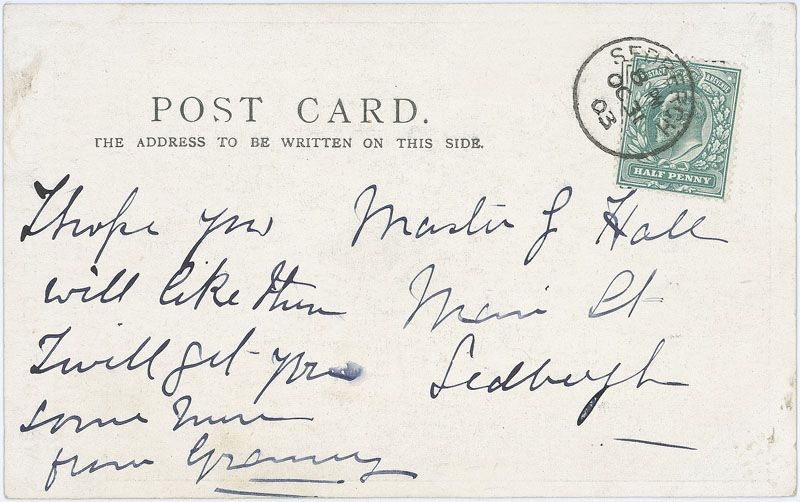 POST CARD.
THE ADDRESS TO BE WRITTEN ON THIS SIDE.
SEDBERGH
OC 21
03
POSTAGE REVENUE
HALF PENNY
I hope you
will like them
I will get you
some more
from Granny
Master J Hall
Main St
Sedbergh